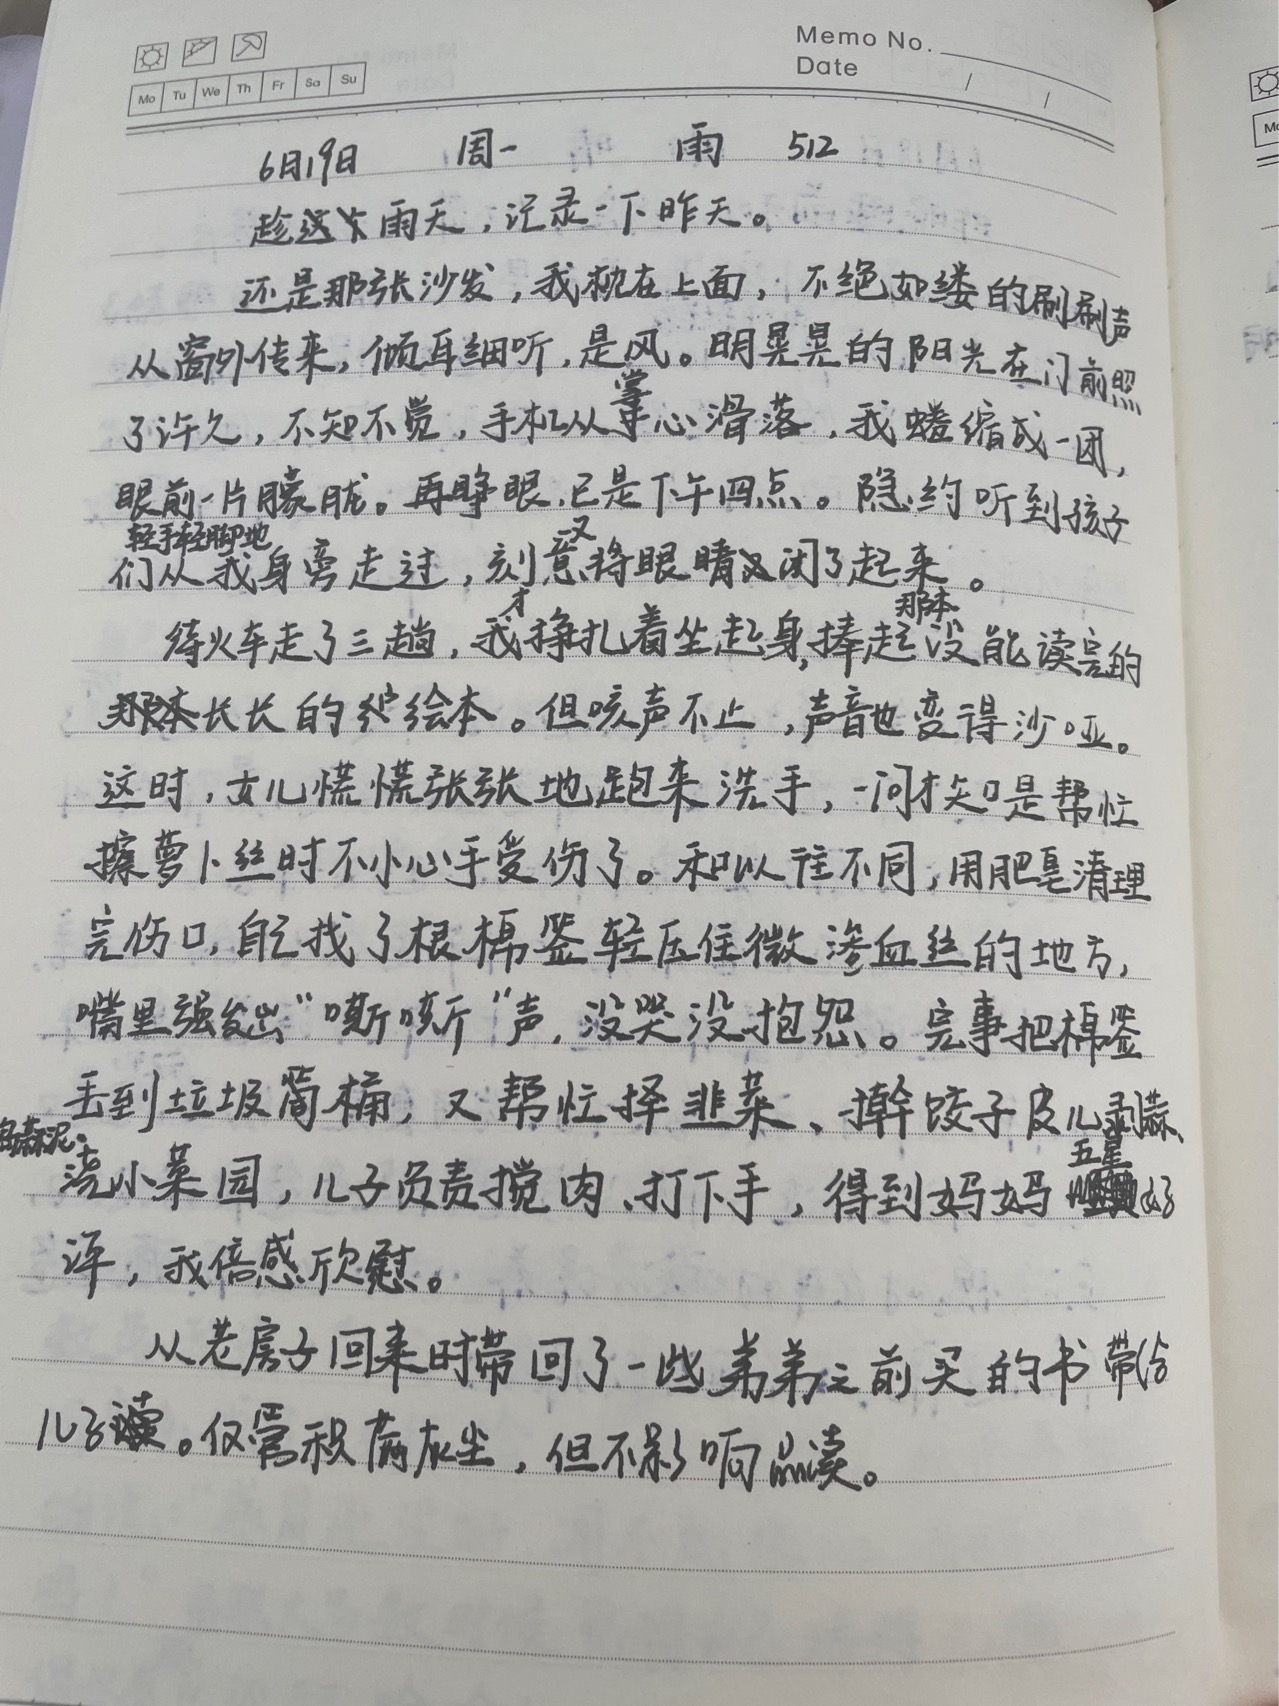 Memo No.
Date / /
Mo Tu We Th Fr Sa Su
6月19日 周一 雨 512
趁这下雨天，记录一下昨天。
还是那张沙发，我枕在上面，不绝如缕的刷刷声
从窗外传来，倾耳细听，是风。明晃晃的阳光在门前照
了许久，不知不觉，手机从掌心滑落，我蜷缩成一团，
眼前一片朦胧。再睁眼，已是下午四点。隐约听到孩子
们轻手轻脚地从我身旁走过，刻意又将眼睛闭了起来。
待火车走了三趟，我才挣扎着坐起身，捧起那本没能读完的
长长的绘本。但咳声不止，声音也变得沙哑。
这时，女儿慌慌张张地跑来洗手，一问才知是帮忙
擦萝卜丝时不小心手受伤了。和以往不同，用肥皂清理
完伤口，自己找了根棉签轻压住微渗血丝的地方，
嘴里强发出“嘶嘶”声，没哭没抱怨。完事把棉签
丢到垃圾筒桶，又帮忙择韭菜、擀饺子皮儿、剥蒜、
捣蒜泥、浇小菜园，儿子负责搅肉、打下手，得到妈妈五星好
评，我倍感欣慰。
从老房子回来时带回了一些弟弟之前买的书带给
儿子读。仅管积满灰尘，但不影响品读。